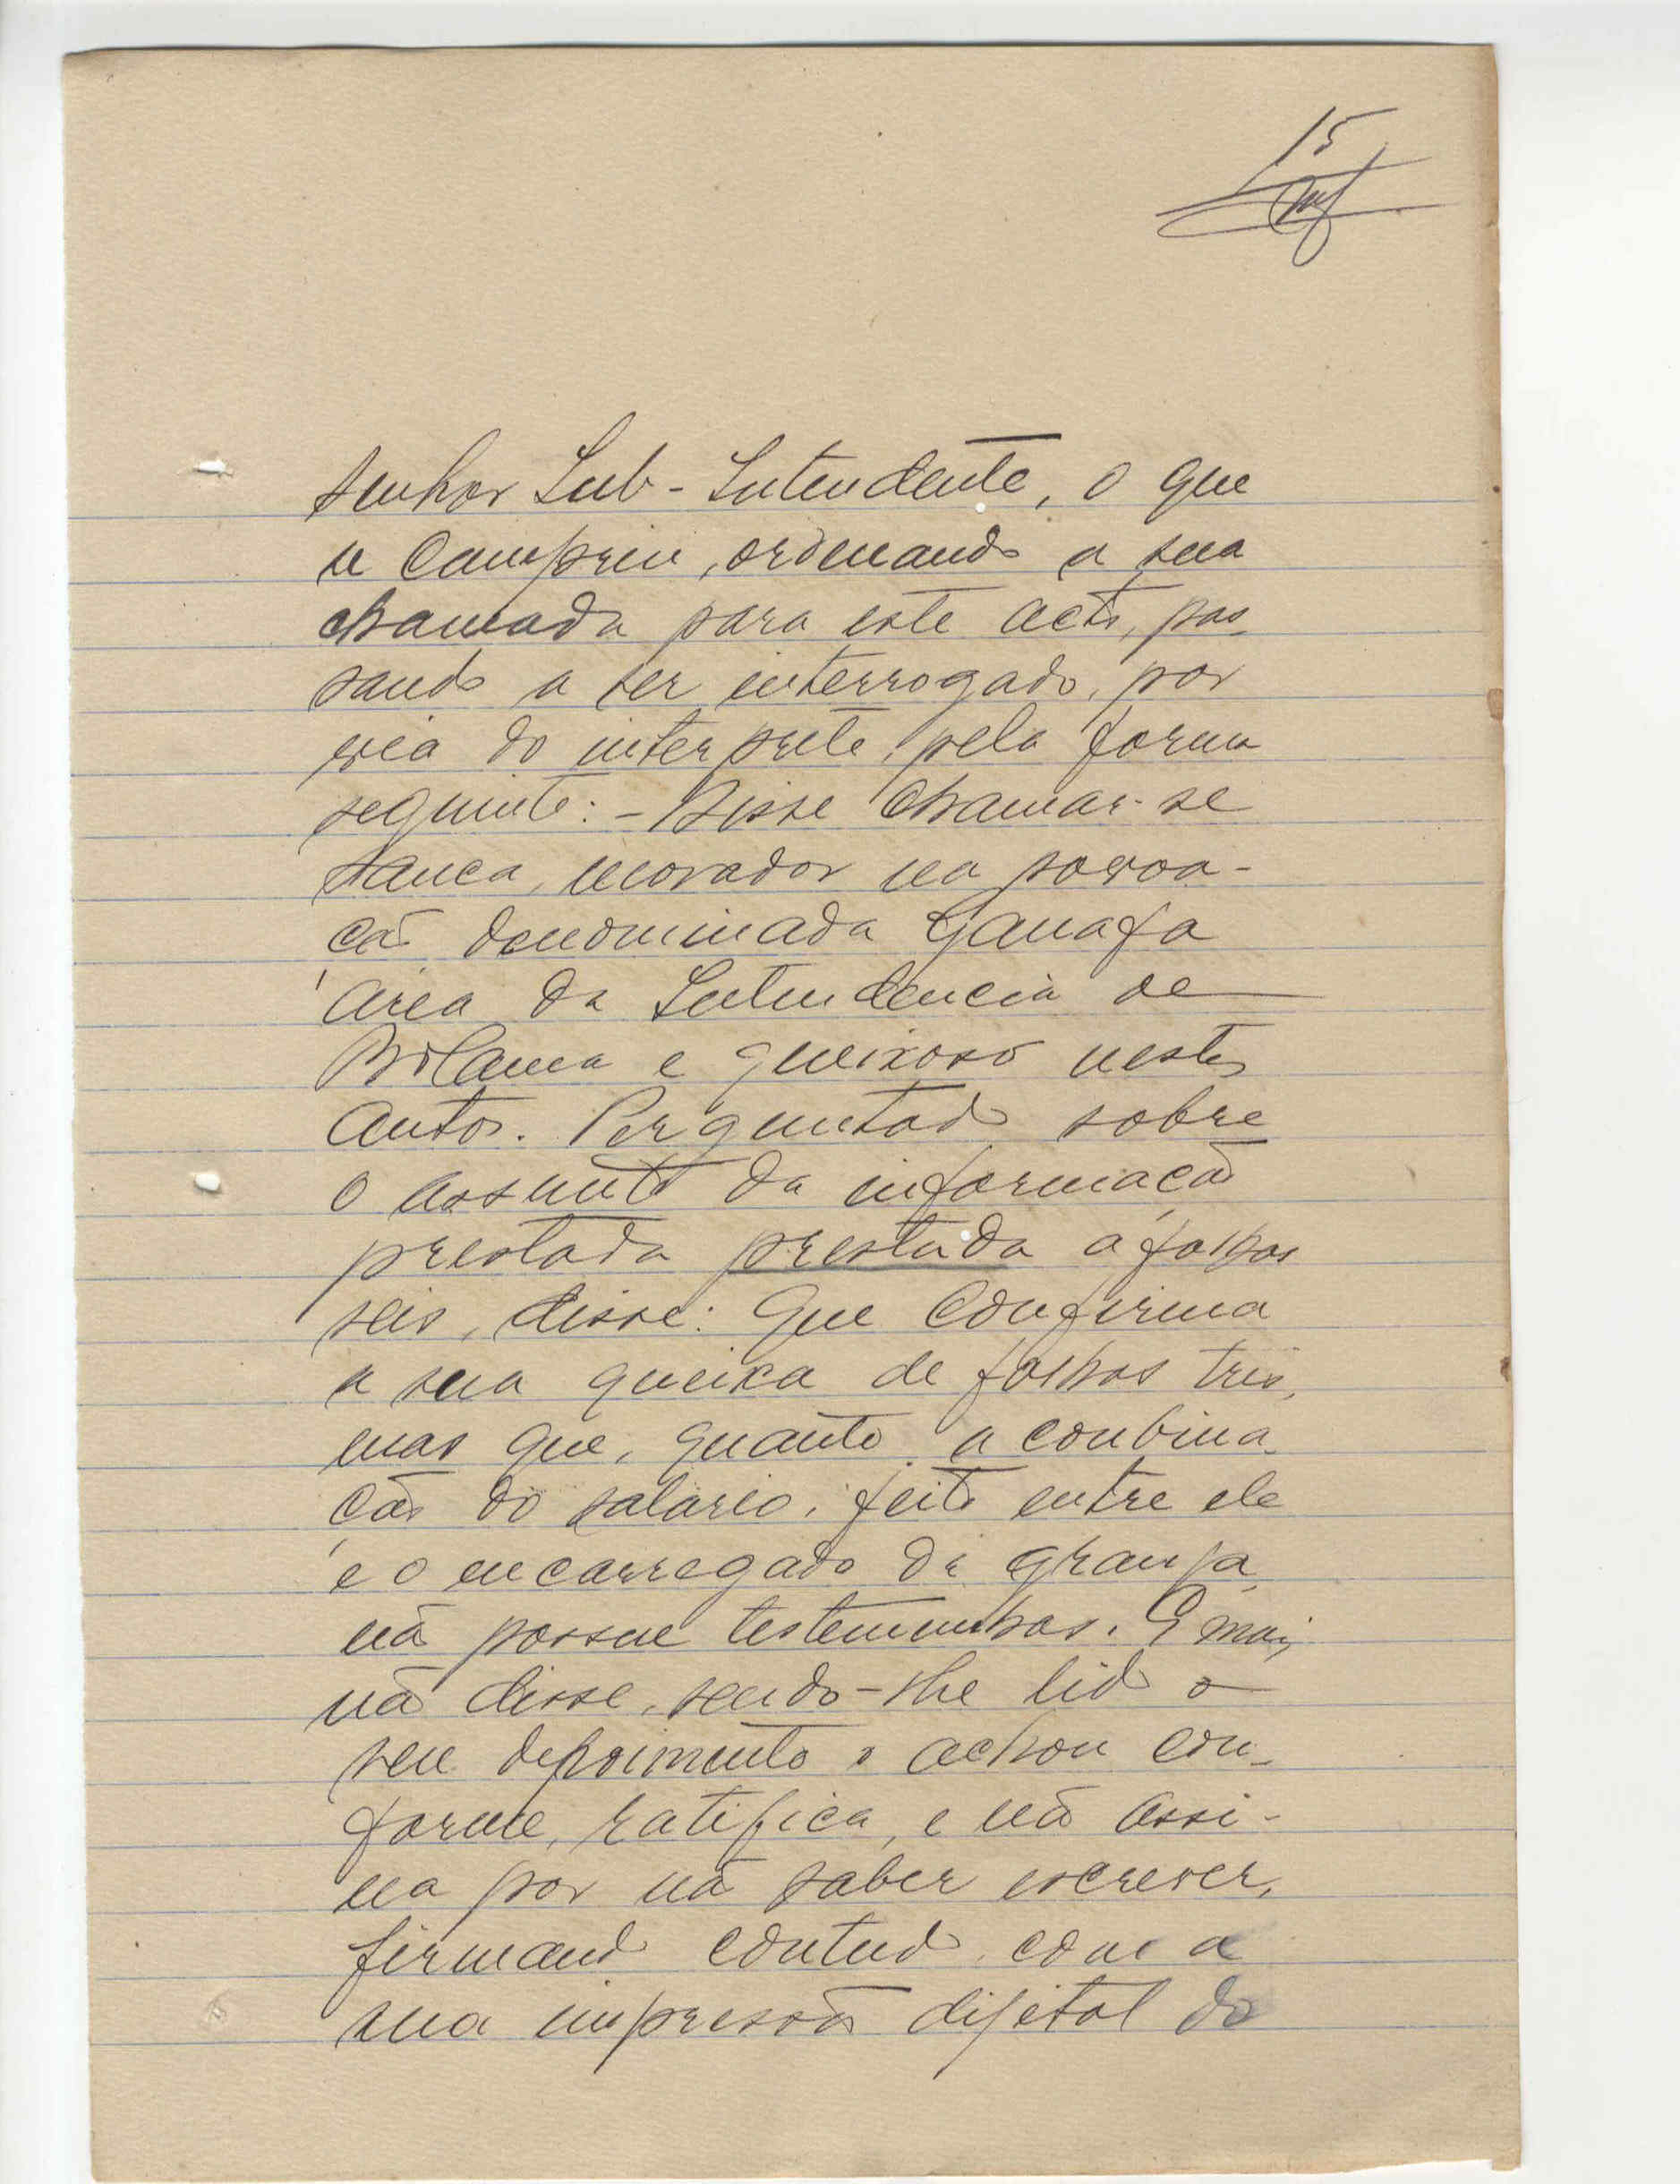 15
senhor Sub-Intendente, o que
se cumpriu, ordenando a sua
chamada para este acto, pas-
sando a ser interrogado, por
via do interprete, pela forma
seguinte: - Disse chamar-se
morador na povoa-
ção denominada Ganafa
área da Intendencia de
Bolama e queixoso nestes
autos. Perguntado sobre
o assunto da informação
prestada prestada a folhas
seis, disse: Que confirma
a sua queixa de folhas três,
mas que, quanto a conbina-
ção do salário, feito entre ele
e o encarregado da granja
não possue testemunhas. E mais
não disse, sendo-lhe lido o
seu depoimento o achou con-
forme, ratifica, e não assi-
na por não saber escrever,
firmando contudo com a
sua impressão digital do